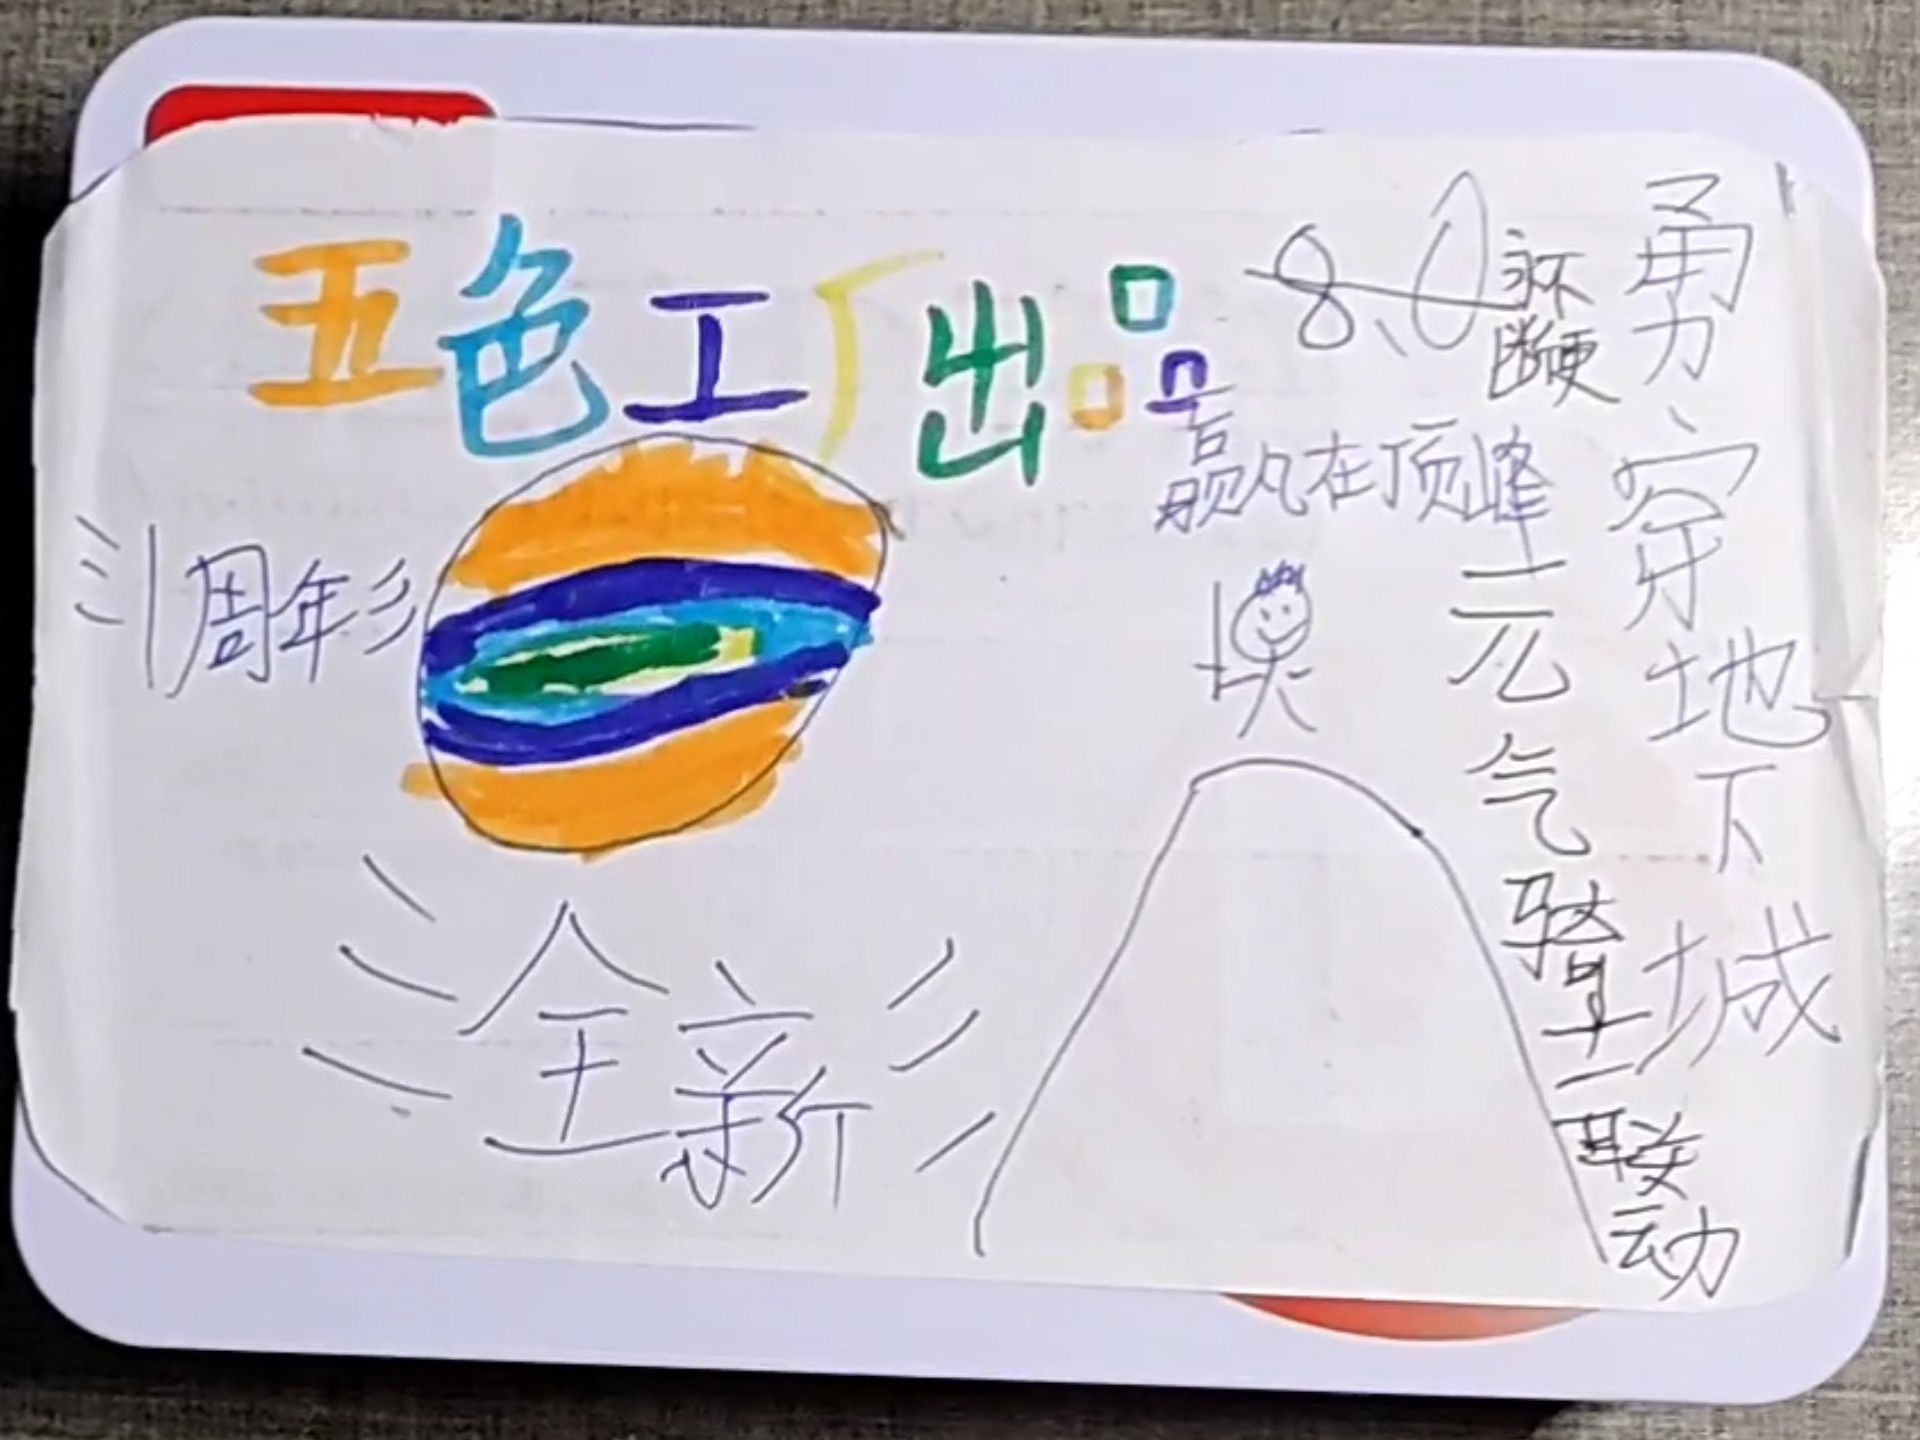 五色工厂出品
8.0
永不
断更
勇穿地下城
赢在顶峰
1周年
元气骑士联动
全新